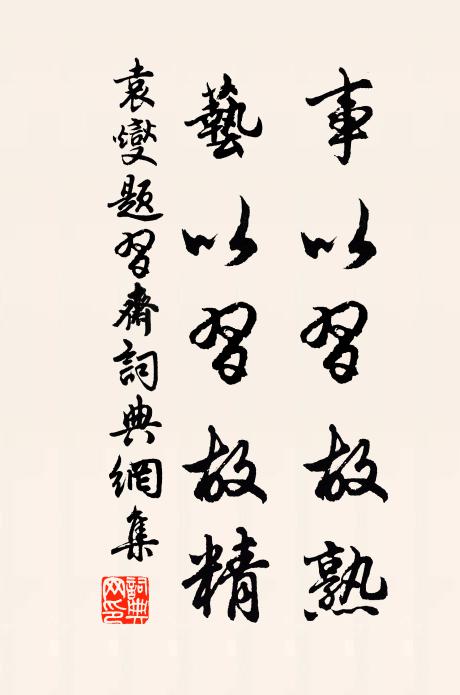 事以習故熟
藝以習故精
袁燮題習齋詞典網集
詞典
网印